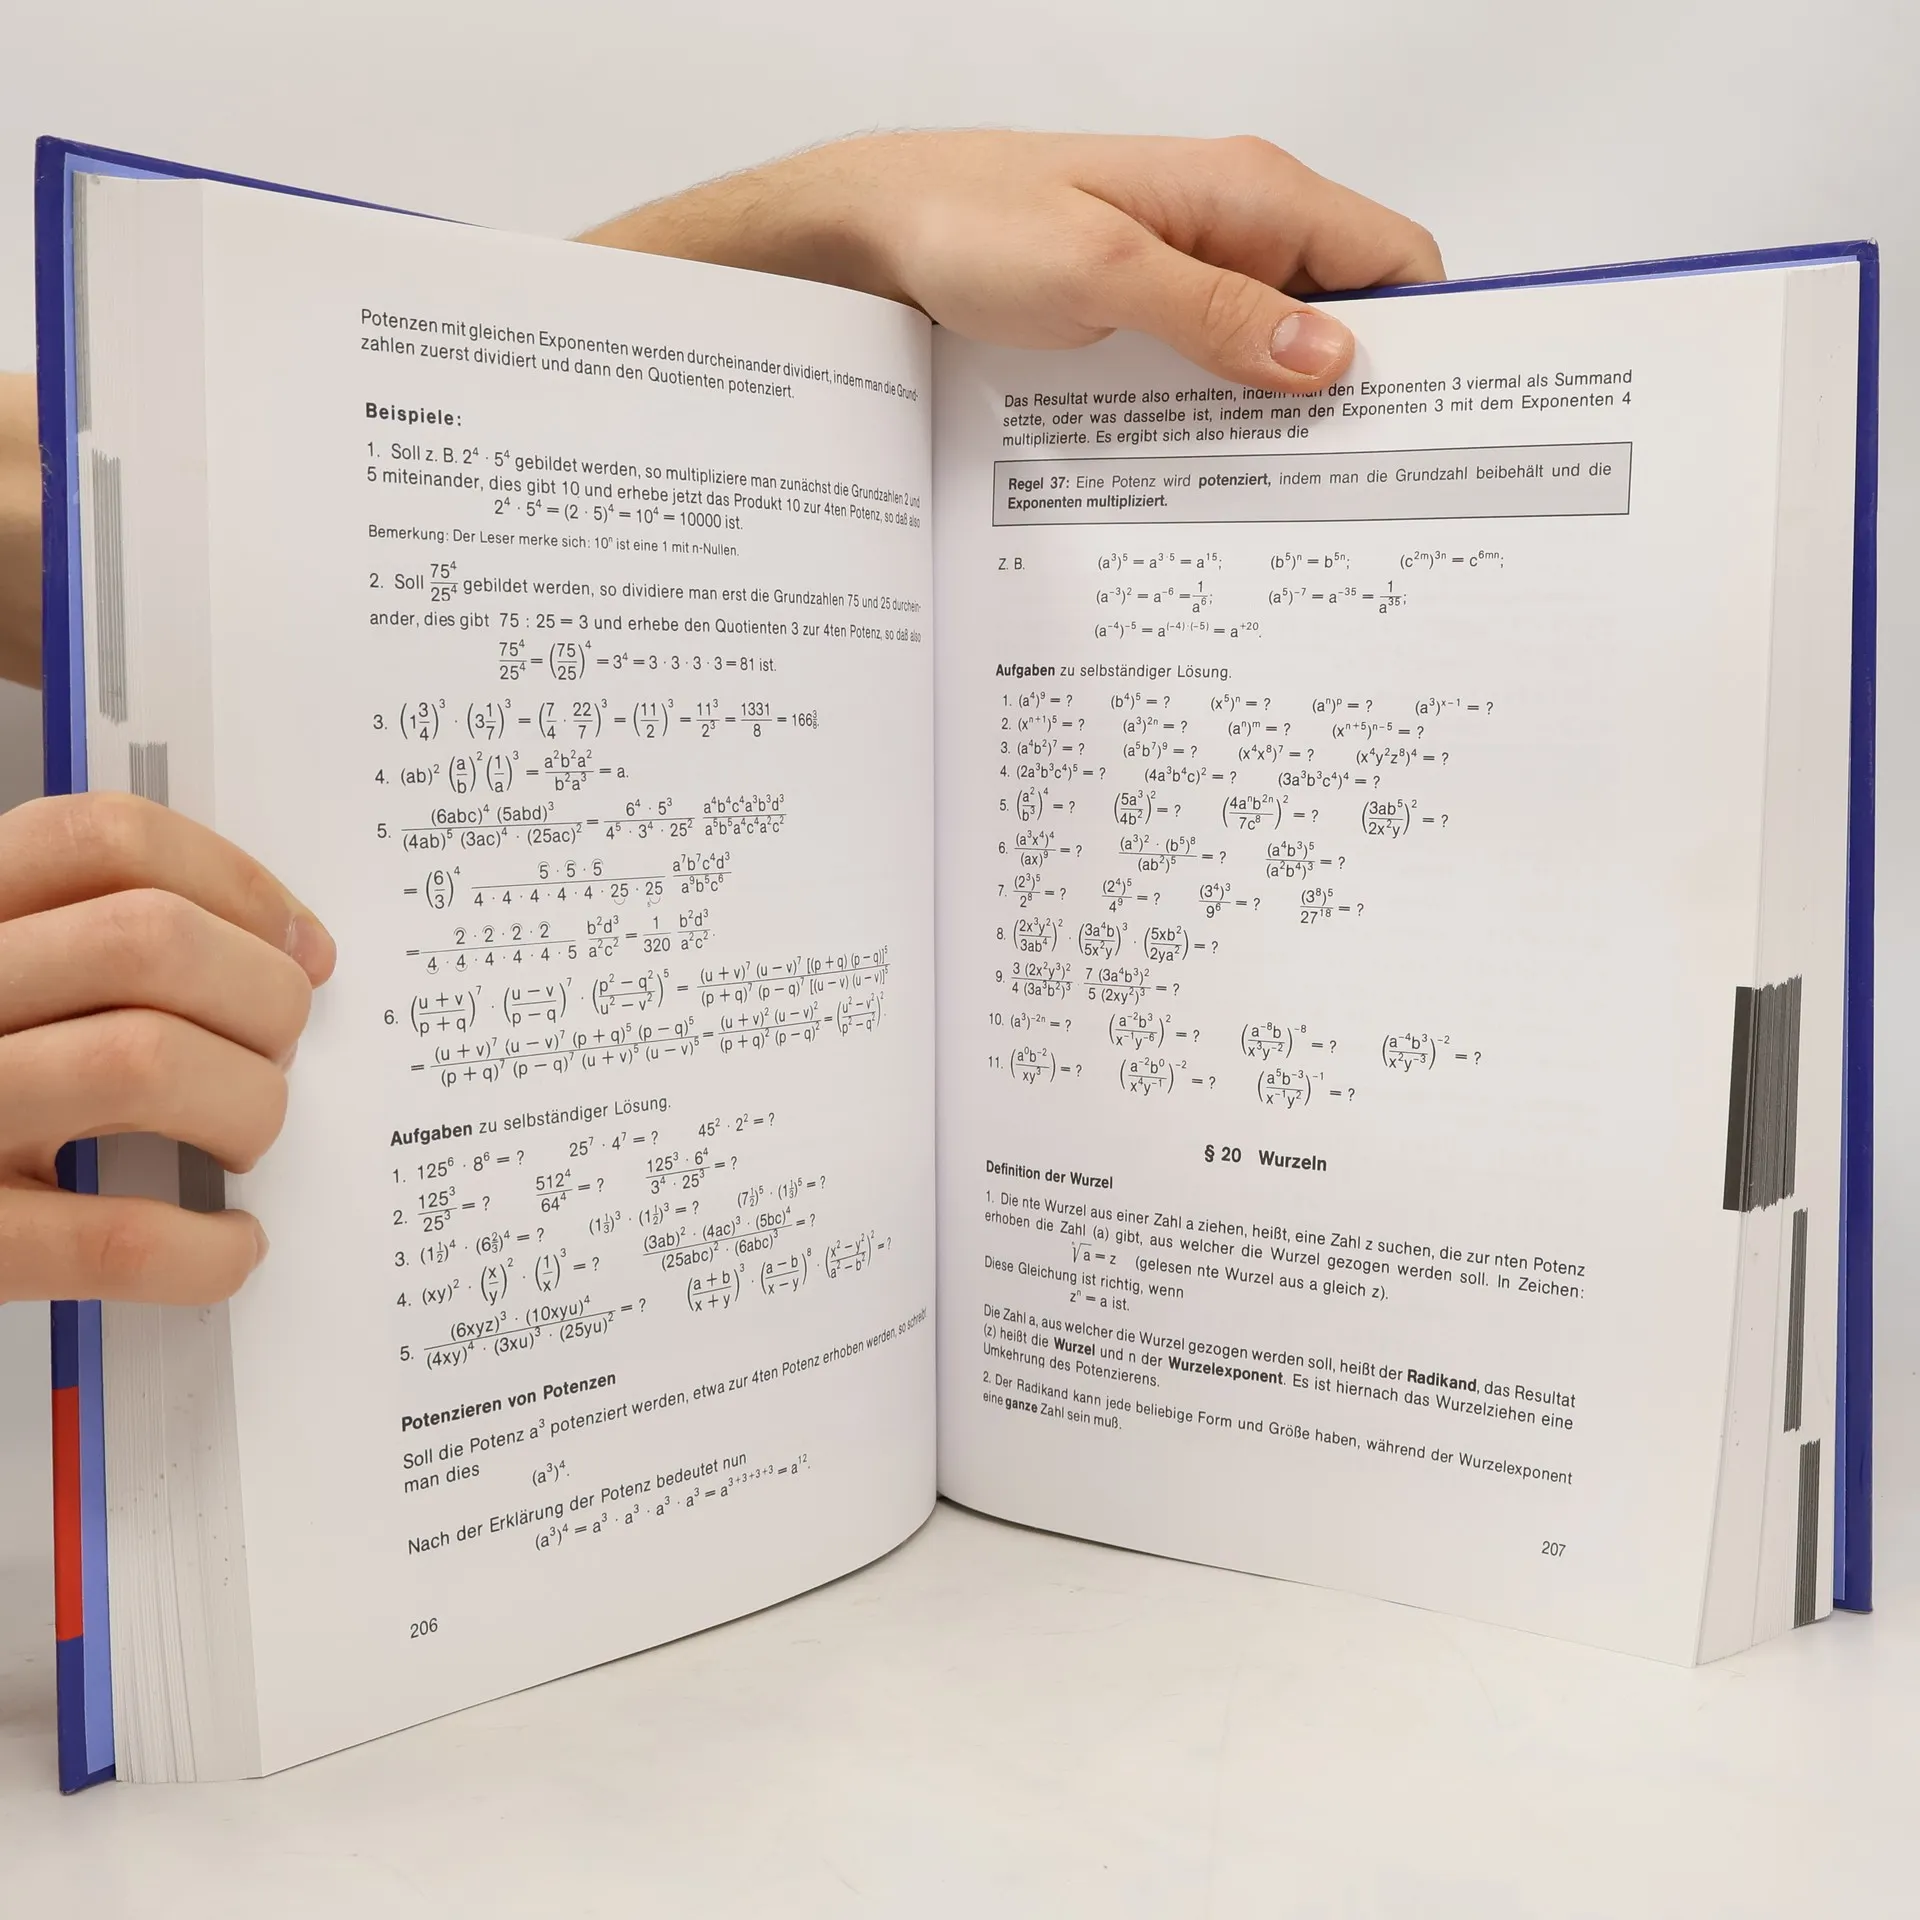 Potenzen mit gleichen Exponenten werden durcheinander dividiert, indem man die Grund-
zahlen zuerst dividiert und dann den Quotienten potenziert.
Beispiele:
1. Soll z. B. 2⁴ · 5⁴ gebildet werden, so multipliziere man zunächst die Grundzahlen 2 und
5 miteinander, dies gibt 10 und erhebe jetzt das Produkt 10 zur 4ten Potenz, so daß also
2⁴ · 5⁴ = (2 · 5)⁴ = 10⁴ = 10000 ist.
Bemerkung: Der Leser merke sich: 10ⁿ ist eine 1 mit n-Nullen.
2. Soll 75⁴/25⁴ gebildet werden, so dividiere man erst die Grundzahlen 75 und 25 durchein-
ander, dies gibt 75 : 25 = 3 und erhebe den Quotienten 3 zur 4ten Potenz, so daß also
75⁴/25⁴ = (75/25)⁴ = 3⁴ = 3 · 3 · 3 · 3 = 81 ist.
3. (1 3/4)³ · (3 1/7)³ = (7/4 · 22/7)³ = (11/2)³ = 11³/2³ = 1331/8 = 166 3/8.
4. (ab)² (a/b)² (1/a)³ = a²b²a²/b²a³ = a.
5. (6abc)⁴ (5abd)³/(4ab)⁵ (3ac)⁴ · (25ac)² = 6⁴ · 5³/4⁵ · 3⁴ · 25² a⁴b⁴c⁴a³b³d³/a⁵b⁵a⁴c⁴a²c²
= (6/3)⁴ 5 · 5 · 5/4 · 4 · 4 · 4 · 4 · 25 · 25 a⁷b⁷c⁴d³/a⁹b⁵c⁶
= 2 · 2 · 2 · 2/4 · 4 · 4 · 4 · 4 · 5 b²d³/a²c² = 1/320 b²d³/a²c².
6. ((u + v)/(p + q))⁷ · ((u − v)/(p − q))⁷ · ((p² − q²)/(u² − v²))⁵ = (u + v)⁷ (u − v)⁷ [(p + q) (p − q)]⁵/(p + q)⁷ (p − q)⁷ [(u − v) (u − v)]⁵
= (u + v)⁷ (u − v)⁷ (p + q)⁵ (p − q)⁵/(p + q)⁷ (p − q)⁷ (u + v)⁵ (u − v)⁵ = (u + v)² (u − v)²/(p + q)² (p − q)² = ((u² − v²)/(p² − q²))².
Aufgaben zu selbständiger Lösung.
1. 125⁶ · 8⁶ = ? 25⁷ · 4⁷ = ? 45² · 2² = ?
2. 125³/25³ = ? 512⁴/64⁴ = ? 125³ · 6⁴/3⁴ · 25³ = ?
3. (1 1/2)⁴ · (6 2/3)⁴ = ? (1 1/3)³ · (1 1/2)³ = ? (7 1/2)⁵ · (1 1/3)⁵ = ?
4. (xy)² · (x/y)² · (1/x)³ = ? (3ab)² · (4ac)³ · (5bc)⁴/(25abc)² · (6abc)³ = ?
5. (6xyz)³ · (10xyu)⁴/(4xy)⁴ · (3xu)³ · (25yu)² = ? ((a + b)/(x + y))³ · ((a − b)/(x − y))⁸ · ((x² − y²)/(a² − b²))² = ?
Potenzieren von Potenzen
Soll die Potenz a³ potenziert werden, etwa zur 4ten Potenz erhoben werden, so schreibt
man dies (a³)⁴.
Nach der Erklärung der Potenz bedeutet nun
(a³)⁴ = a³ · a³ · a³ · a³ = a³⁺³⁺³⁺³ = a¹².
206
Das Resultat wurde also erhalten, indem man den Exponenten 3 viermal als Summand
setzte, oder was dasselbe ist, indem man den Exponenten 3 mit dem Exponenten 4
multiplizierte. Es ergibt sich also hieraus die
Regel 37: Eine Potenz wird potenziert, indem man die Grundzahl beibehält und die
Exponenten multipliziert.
Z. B. (a³)⁵ = a³˙⁵ = a¹⁵; (b⁵)ⁿ = b⁵ⁿ; (c²ᵐ)³ⁿ = c⁶ᵐⁿ;
(a⁻³)² = a⁻⁶ = 1/a⁶; (a⁵)⁻⁷ = a⁻³⁵ = 1/a³⁵;
(a⁻⁴)⁻⁵ = a⁽⁻⁴⁾˙⁽⁻⁵⁾ = a⁺²⁰.
Aufgaben zu selbständiger Lösung.
1. (a⁴)⁹ = ? (b⁴)⁵ = ? (x⁵)ⁿ = ? (aⁿ)ᵖ = ? (a³)ˣ⁻¹ = ?
2. (xⁿ⁺¹)⁵ = ? (a³)²ⁿ = ? (aⁿ)ᵐ = ? (xⁿ⁺⁵)ⁿ⁻⁵ = ?
3. (a⁴b²)⁷ = ? (a⁵b⁷)⁹ = ? (x⁴x⁸)⁷ = ? (x⁴y²z⁸)⁴ = ?
4. (2a³b³c⁴)⁵ = ? (4a³b⁴c)² = ? (3a³b³c⁴)⁴ = ?
5. (a²/b³)⁴ = ? (5a³/4b²)² = ? (4aⁿb²ⁿ/7c⁸)² = ? (3ab⁵/2x²y)² = ?
6. (a³x⁴)⁴/(ax)⁹ = ? (a³)² · (b⁵)⁸/(ab²)⁵ = ? (a⁴b³)⁵/(a²b⁴)³ = ?
7. (2³)⁵/2⁸ = ? (2⁴)⁵/4⁹ = ? (3⁴)³/9⁶ = ? (3⁸)⁵/27¹⁸ = ?
8. (2x³y²/3ab⁴)² · (3a⁴b/5x²y)³ · (5xb²/2ya²) = ?
9. 3 (2x²y³)²/4 (3a³b²)³ · 7 (3a⁴b³)²/5 (2xy²)³ = ?
10. (a³)⁻²ⁿ = ? (a⁻²b³/x⁻¹y⁻⁶)² = ? (a⁻⁸b/x³y⁻²)⁻⁸ = ? (a⁻⁴b³/x²y⁻³)⁻² = ?
11. (a⁰b⁻²/xy³) = ? (a⁻²b⁰/x⁴y⁻¹)⁻² = ? (a⁵b⁻³/x⁻¹y²)⁻¹ = ?
§ 20 Wurzeln
Definition der Wurzel
1. Die nte Wurzel aus einer Zahl a ziehen, heißt, eine Zahl z suchen, die zur nten Potenz
erhoben die Zahl (a) gibt, aus welcher die Wurzel gezogen werden soll. In Zeichen:
ⁿ√a = z (gelesen nte Wurzel aus a gleich z).
Diese Gleichung ist richtig, wenn
zⁿ = a ist.
Die Zahl a, aus welcher die Wurzel gezogen werden soll, heißt der Radikand, das Resultat
(z) heißt die Wurzel und n der Wurzelexponent. Es ist hiernach das Wurzelziehen eine
Umkehrung des Potenzierens.
2. Der Radikand kann jede beliebige Form und Größe haben, während der Wurzelexponent
eine ganze Zahl sein muß.
207